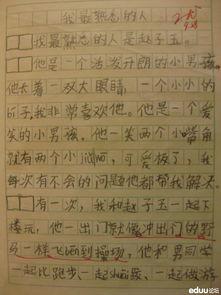 我最熟悉的人
我最熟悉的人是赵子玉。
他是一个活泼开朗的小男孩。
他长着一双大眼睛,一个小小的
我非常喜欢他。他是一个爱
笑的小男孩。他一笑两个小嘴角
就有两个小酒窝,可爱极了,我
每次有不会的问题他都帮我解决
有一次,我和赵子玉一起下
楼玩,他一出门就像冲出门的野
马一样飞跑到操场,他和男同学
一起比跑步、一起一起做游
eduu.com